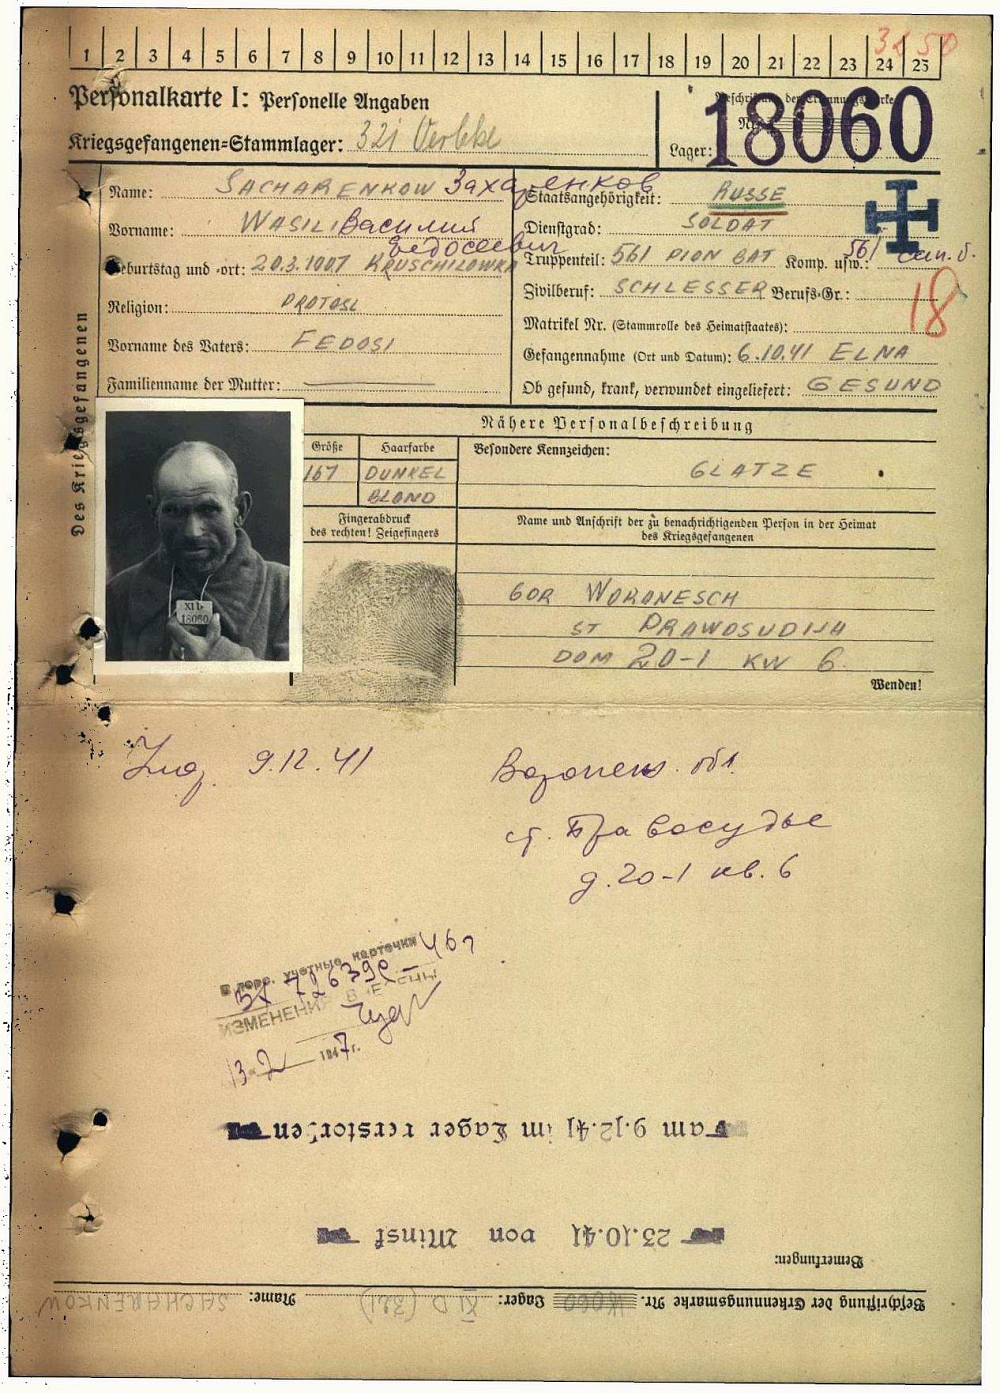 1 2 3 4 5 6 7 8 9 10 11 12 13 14 15 16 17 18 19 20 21 22 23 24 25
Personalkarte I: Personelle Angaben
Kriegsgefangenen-Stammlager: 321 Oerbke
Beschriftung der Erkennungsmarke
Nr.
18060
Lager:
Des Kriegsgefangenen
Name: SACHARENKOW Захаренков
Vorname: WASILI Василий
Федосеевич
Geburtstag und -ort: 20.3.1907 KRUSCHILOWKA
Religion: PROTOSL
Vorname des Vaters: FEDOSI
Familienname der Mutter:
Staatsangehörigkeit: RUSSE
Dienstgrad: SOLDAT
Truppenteil: 561 PION BAT Komp. usw.: 561 сап. б.
Zivilberuf: SCHLESSER Berufs-Gr.: 18
Matrikel Nr. (Stammrolle des Heimatstaates):
Gefangennahme (Ort und Datum): 6.10.41 ELNA
Ob gesund, krank, verwundet eingeliefert: GESUND
Nähere Personalbeschreibung
Größe Haarfarbe Besondere Kennzeichen:
167 DUNKEL GLATZE
BLOND
Fingerabdruck
des rechten! Zeigefingers
Name und Anschrift der zu benachrichtigenden Person in der Heimat
des Kriegsgefangenen
XI D
18060
GOR WORONESCH
ST PRAWOSUDIJA
DOM 20-1 KW 6
Wenden!
9.12.41
Воронеж. обл.
ст. Правосудье
д. 20-1 кв. 6
учетные карточки
ИЗМЕНЕНИ
13 1947г.
am 9.12.41 im Lager verstorben
23.10.41 von Minsk
Bemerkungen:
Beschriftung der Erkennungsmarke Nr. 18060 Lager: XI D (321) Name: SACHARENKOW